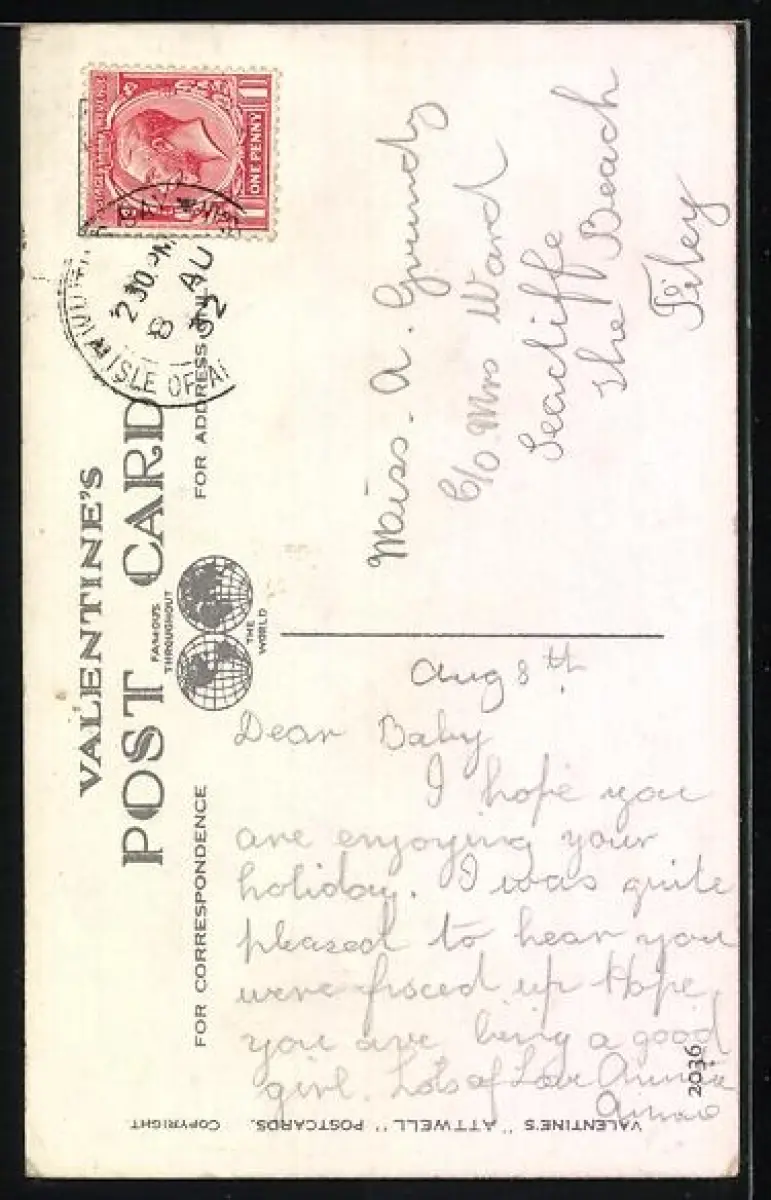 VALENTINE'S
POST CARD
FAMOUS
THROUGHOUT
THE
WORLD
FOR CORRESPONDENCE
FOR ADDRESS ONLY
ONE PENNY
2 30 PM
8 AU
32
ISLE OF
Miss. A. Grundy
C/O. Mrs Ward
Seacliffe
The Beach
Filey
Aug 8th
Dear Baby
I hope you
are enjoying your
holiday. I was quite
pleased to hear you
were fixed up Hope
you are being a good
girl. Lots of Love
VALENTINE'S "ATTWELL" POSTCARDS. COPYRIGHT
2036